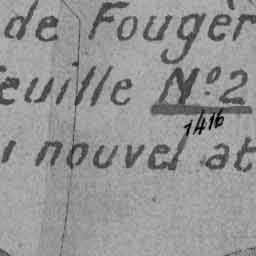 de Fougèr
euille Nº. 2
1416
u nouvel at